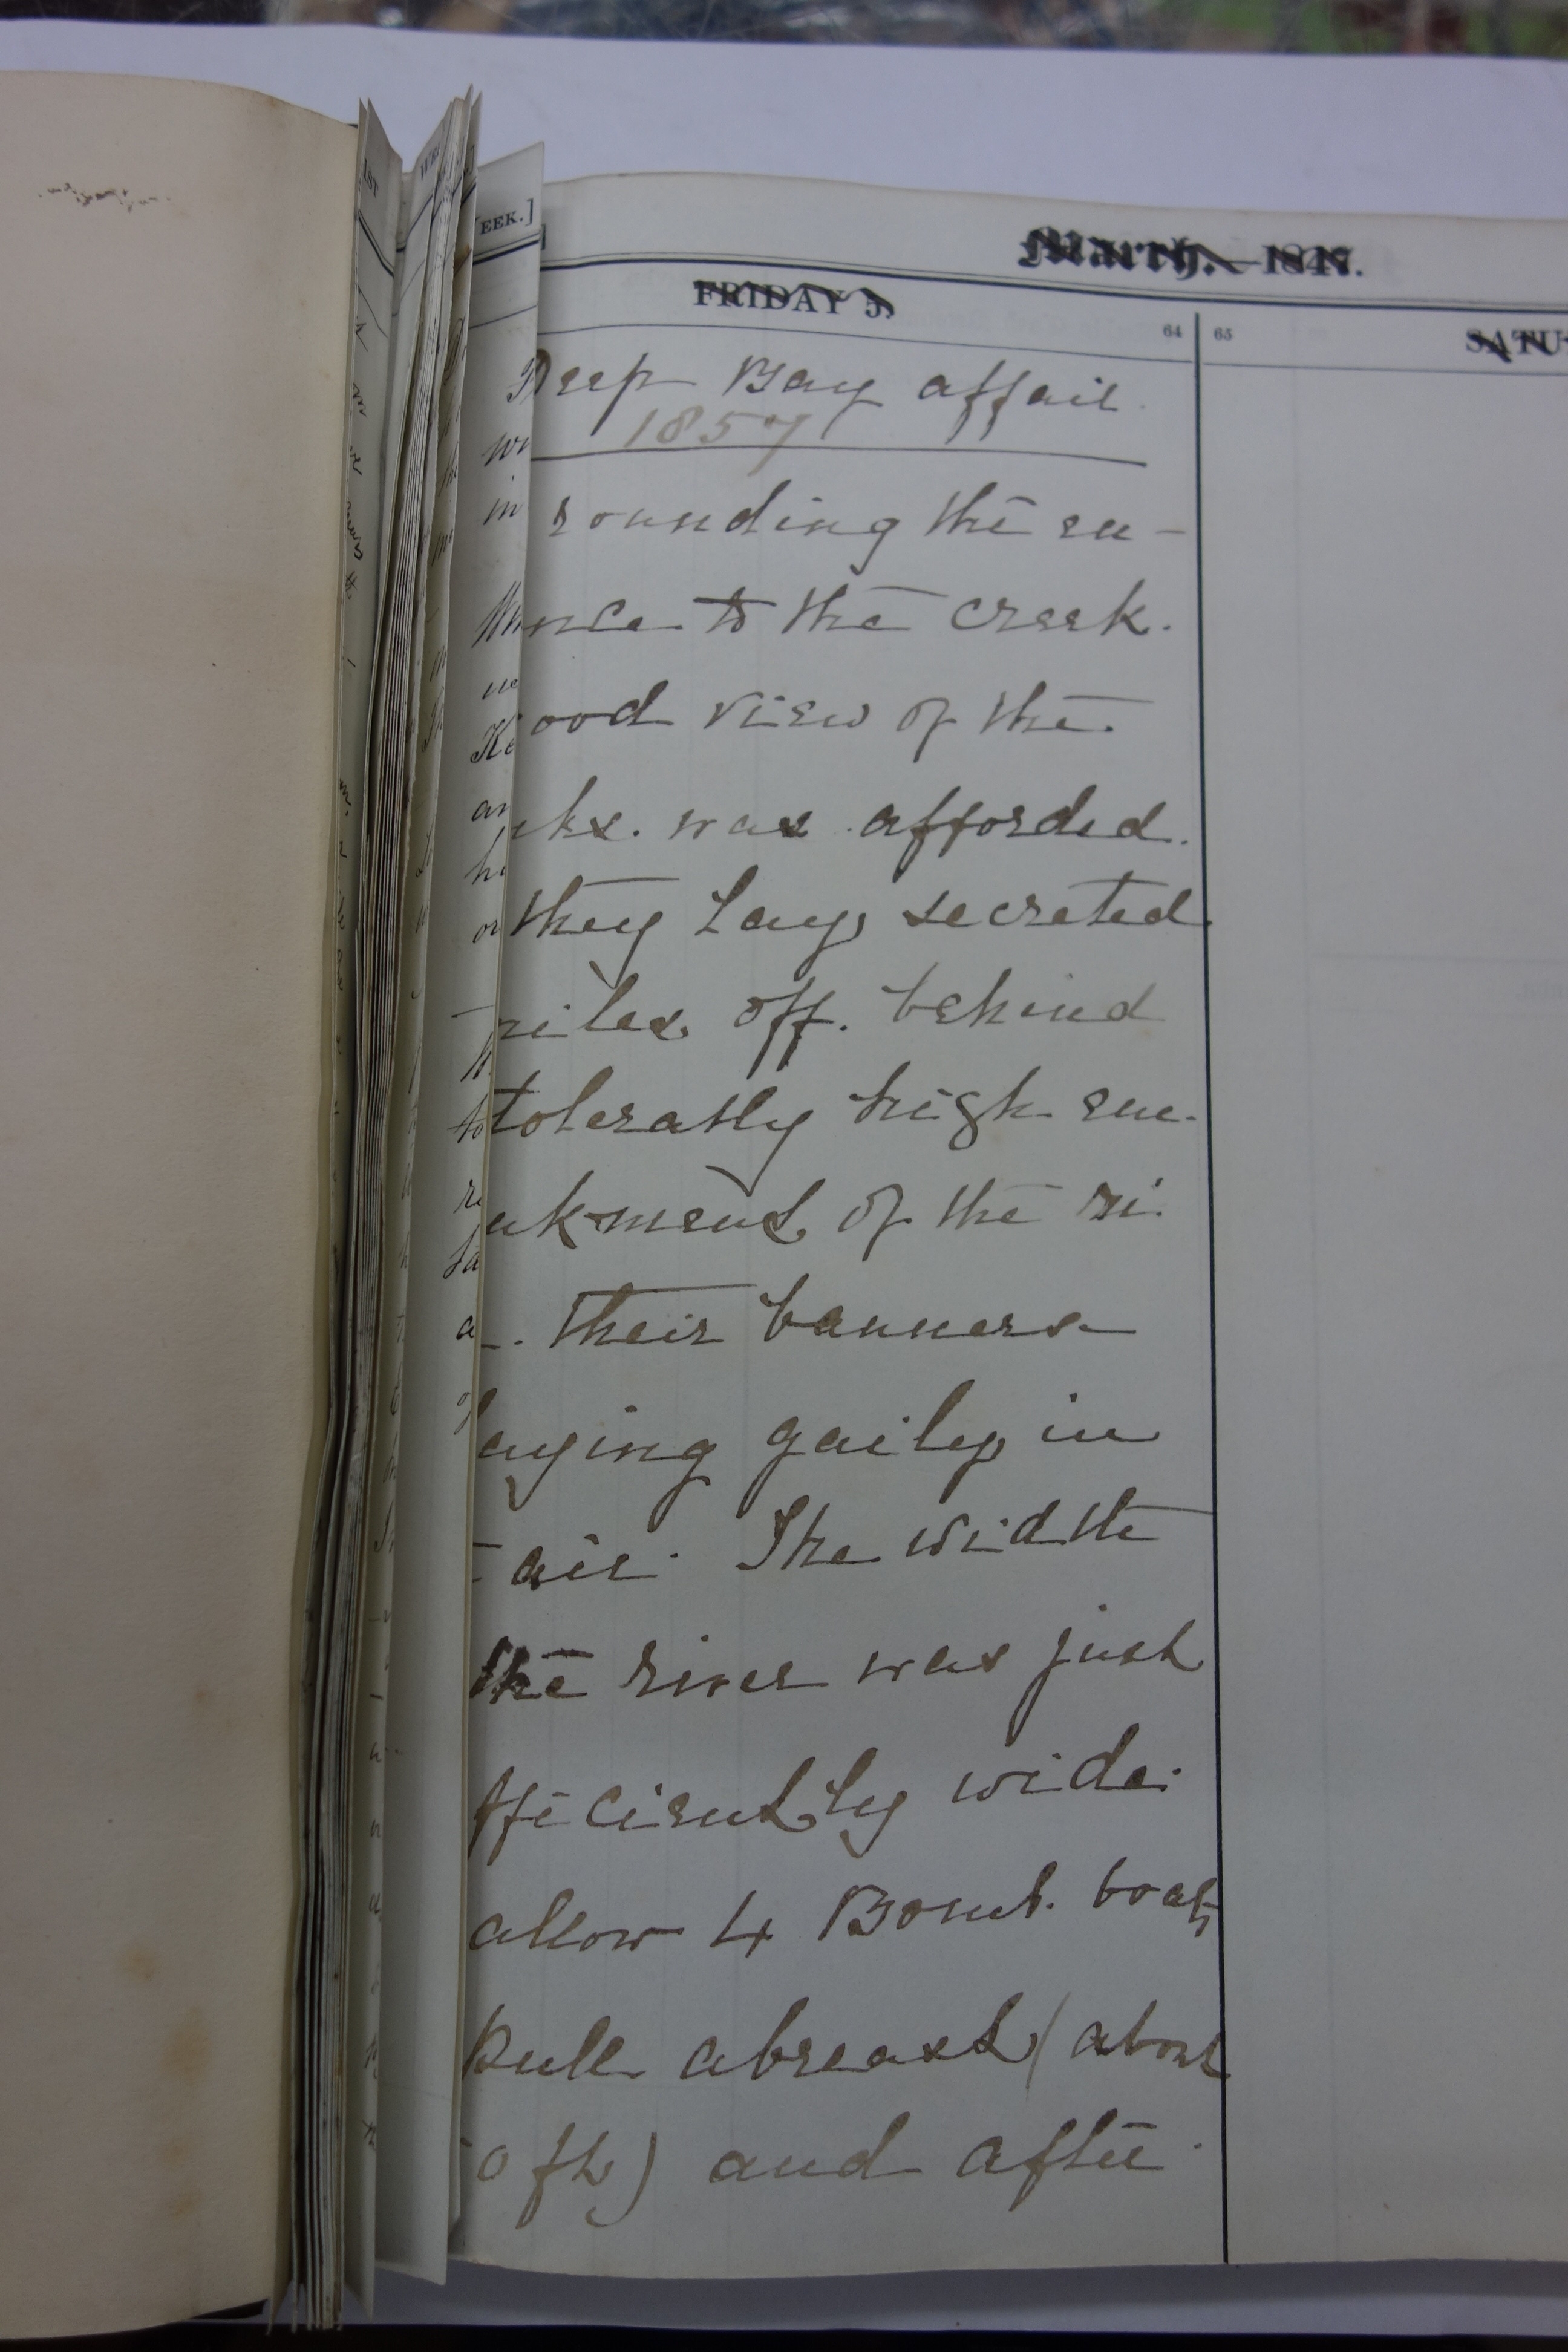 EEK.]
March. 1847.
FRIDAY 5.
64
65
SATU
Deep Bay affair
1857
rounding the en-
nce to the creek.
ood view of the
nks. was afforded.
they Lay secreted
miles off. behind
tolerably high em-
nkment of the ri.
. their banners
laying gaily in
air. The width
the river was just
fficiently wide.
allow 4 Bomb. boats
pull abreast (about
0 ft) and after